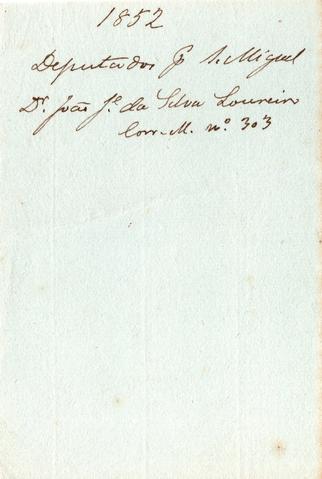 1852
Deputados p. S. Miguel
Dr. João Je. da Silva Loureiro
Corr. M. nº. 303